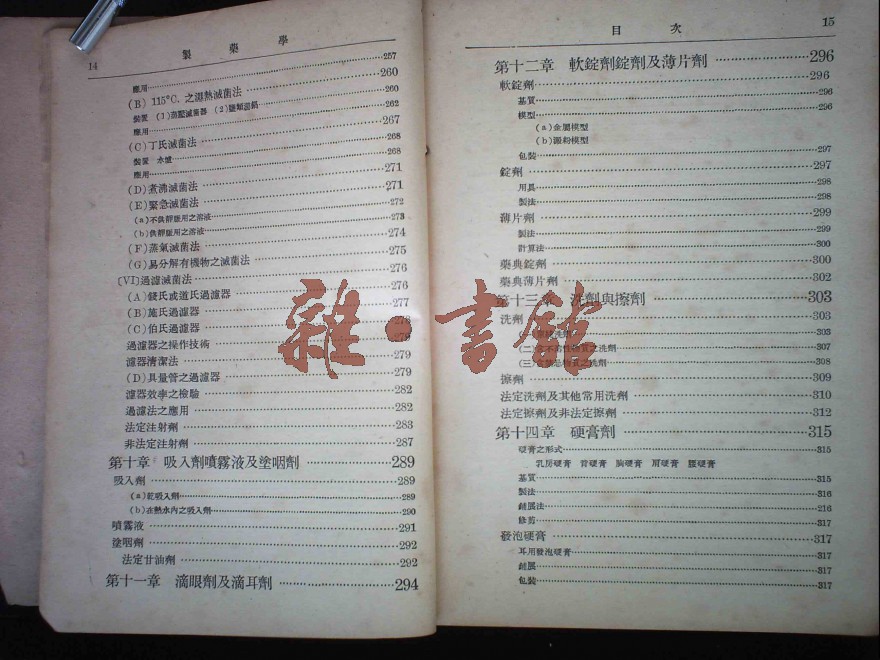 14 製藥學
應用 257
(B) 115°C. 之濕熱滅菌法 260
裝置 (1)高壓滅菌器 (2) 260
應用 262
(C)丁氏滅菌法 267
裝置 水爐 268
應用 268
(D)煮沸滅菌法 271
(E)緊急滅菌法 271
(a)不供靜脈用之溶液 272
(b)供靜脈用之溶液 273
(F)蒸氣滅菌法 274
(G)易分解有機物之滅菌法 275
[VI]過濾滅菌法 276
(A)錢氏或道氏過濾器 276
(B)施氏過濾器 277
(C)伯氏過濾器 278
過濾器之操作技術
濾器清潔法 279
(D)具量管之過濾器 279
濾器效率之檢驗 282
過濾法之應用 282
法定注射劑 283
非法定注射劑 287
第十章 吸入劑噴霧液及塗咽劑 289
吸入劑 289
(a)乾吸入劑 289
(b)在熱水內之吸入劑 290
噴霧液 291
塗咽劑 292
法定甘油劑 292
第十一章 滴眼劑及滴耳劑 294
目次 15
第十二章 軟錠劑錠劑及薄片劑 296
軟錠劑 296
基質 296
模型 296
(a)金屬模型
(b)澱粉模型
包裝 297
錠劑 297
用具 298
製法 298
薄片劑 299
製法 299
計算法 300
藥典錠劑 300
藥典薄片劑 302
第十三章 洗劑與擦劑 303
洗劑 303
(一) 303
(二)含不溶性物質之洗劑 307
(三) 308
擦劑 309
法定洗劑及其他常用洗劑 310
法定擦劑及非法定擦劑 312
第十四章 硬膏劑 315
硬膏之形式 315
乳房硬膏 背硬膏 胸硬膏 肩硬膏 腰硬膏
基質 315
製法 316
創展法 216
修剪 317
發泡硬膏 317
耳用發泡硬膏 317
創展 317
包裝 317
雜·書館